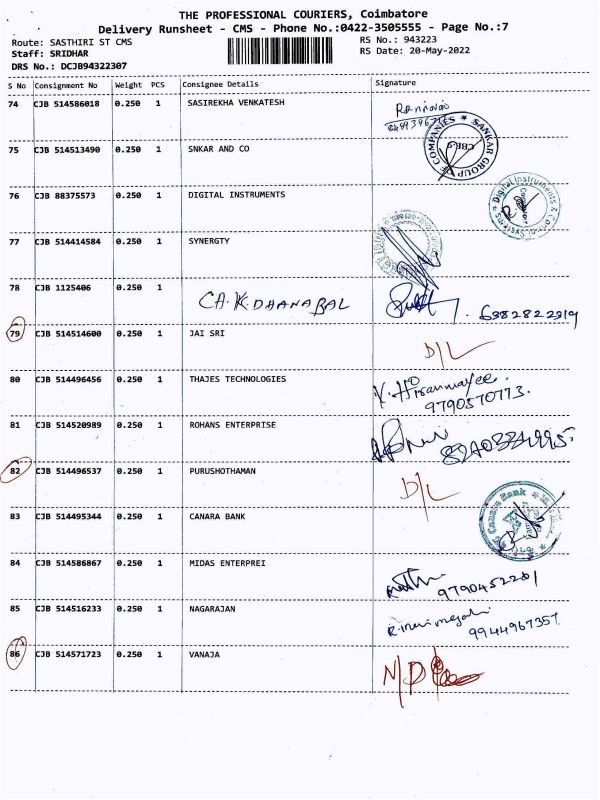 THE PROFESSIONAL COURIERS, Coimbatore
Delivery Runsheet - CMS - Phone No.:0422-3505555 - Page No.:7
Route: SASTHIRI ST CMS RS No.: 943223
Staff: SRIDHAR RS Date: 20-May-2022
DRS No.: DCJB94322307
S No Consignment No Weight PCS Consignee Details Signature
74 CJB 514586018 0.250 1 SASIREKHA VENKATESH
SANKAR GROUP OF COMPANIES
75 CJB 514513490 0.250 1 SNKAR AND CO
76 CJB 88375573 0.250 1 DIGITAL INSTRUMENTS
Digital Instruments
77 CJB 514414584 0.250 1 SYNERGTY
78 CJB 1125406 0.250 1 CA.K.DHANABAL 6382822919
79 CJB 514514600 0.250 1 JAI SRI D/L
80 CJB 514496456 0.250 1 THAJES TECHNOLOGIES K. Hiranmayee.
9790570773.
81 CJB 514520989 0.250 1 ROHANS ENTERPRISE
82 CJB 514496537 0.250 1 PURUSHOTHAMAN D/L
83 CJB 514495344 0.250 1 CANARA BANK
Canara Bank
84 CJB 514586867 0.250 1 MIDAS ENTERPREI
9790452261
85 CJB 514516233 0.250 1 NAGARAJAN
9944967357
86 CJB 514571723 0.250 1 VANAJA N/D